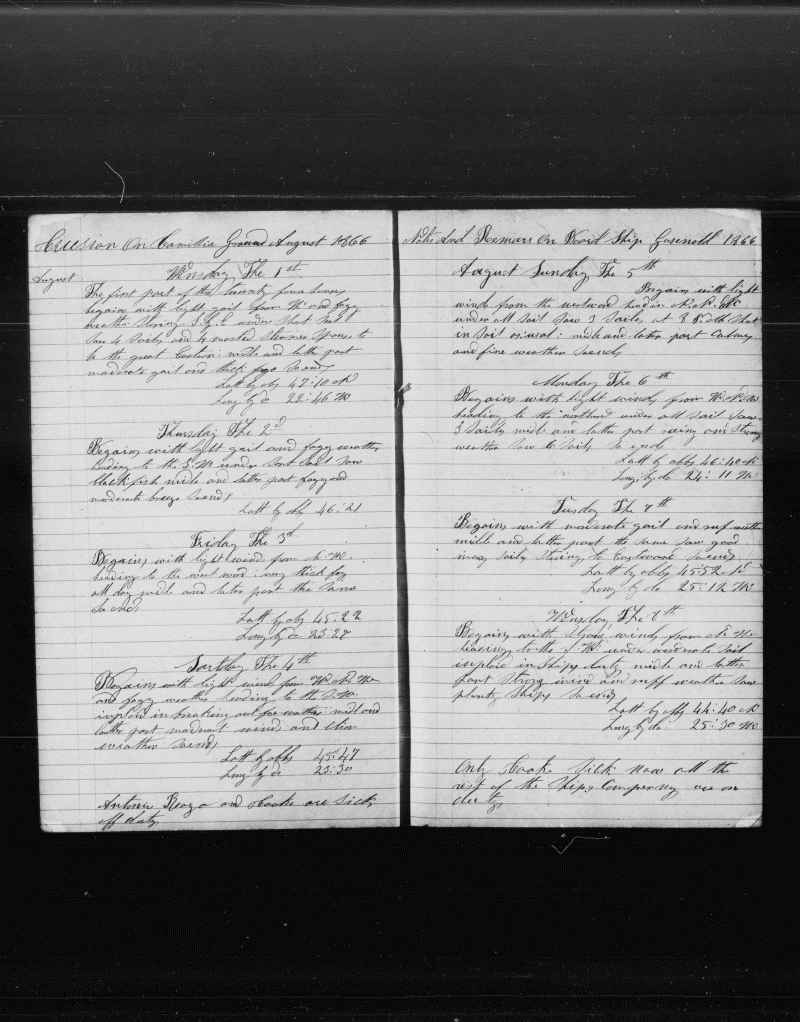 Crusion On Comilia Ground August 1866
August
Wensday The 1st
The first part of this twenty four hours
begains with light gail from W. and fogg
weather stering S by E under short sail
saw 4 Sails and 4 masted Steamer Spouse to
be the great Eastern: midle and latter part
moderate gail and thick fogg So ends
Latt by obs 47:10 N
Long by do 22:46 W
Thursday The 2d
Begains with light gail and foggy weather
heading to the S:W under Sort Sail Saw
blackfish midle and latter part foggy and
moderate breeze So ends
Latt by obs 46:21
Friday The 3d
Begains with light wind from N:W.
heading to the west word very thick fog
all day midle and later part the Same
So ends
Latt by obs 45:22
Long by do 23:27
Sartday The 4th
Begains with light wind from W.N.W
and foggy weather heading to the S.W.
imploid in breaking out for water: midl and
latter part moderat winds and clear
weather So ends
Latt by obbs 45:47
Long by do 23:30
Antonie and Cooke are Sick
off duty.
Nots And Remars On Board Ship Gosnold 1866
August Sunday The 5th
Begains with light
winds from the westword heading N:
under all Sail Saw 3 Sails, at
in Sail as usal: midle and later part Calmy
and fine weather So ends
Monday The 6th
Begains with light winds from W.N.W.
heading to the nothard under all Sail Saw
3 Sails midle and latter part and Strong
weather Saw 6 Sails So ends
Latt by obbs 46:40 N
Long by do 24:11 W
Tusday The 7th
Begains with moderate gail and ruf weather
midle and latter part the same Saw good
many Sails Stering to Eastword So ends
Latt by obbs 45:52 N
Long by do 25:12 W
Wensday The 8th
Begains with Strong winds from N. W.
heading to the S.W. under moderate Sail
imploid in Ships duty midle and latter
part Strong wind and ruff weather Saw
planty Ships So ends
Latt by obbs 44:40 N
Long by do 25:30 W
Only Cooke Sick now all the
rest of the Ships Compenny are on
duty